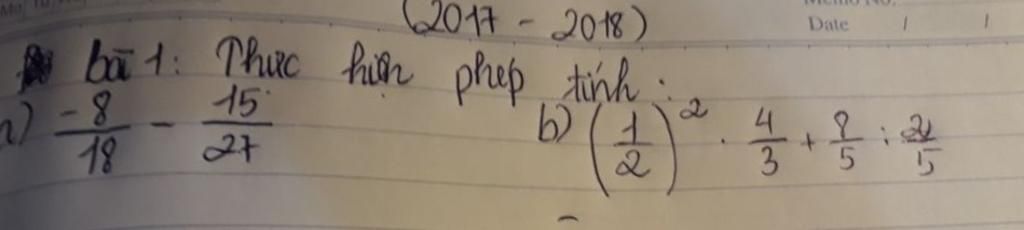 (2017 - 2018)
Date
bài 1: Thực hiện phép tính:
a) -8/18 - 15/27 b) (1/2)² . 4/3 + 8/5 : 2/5